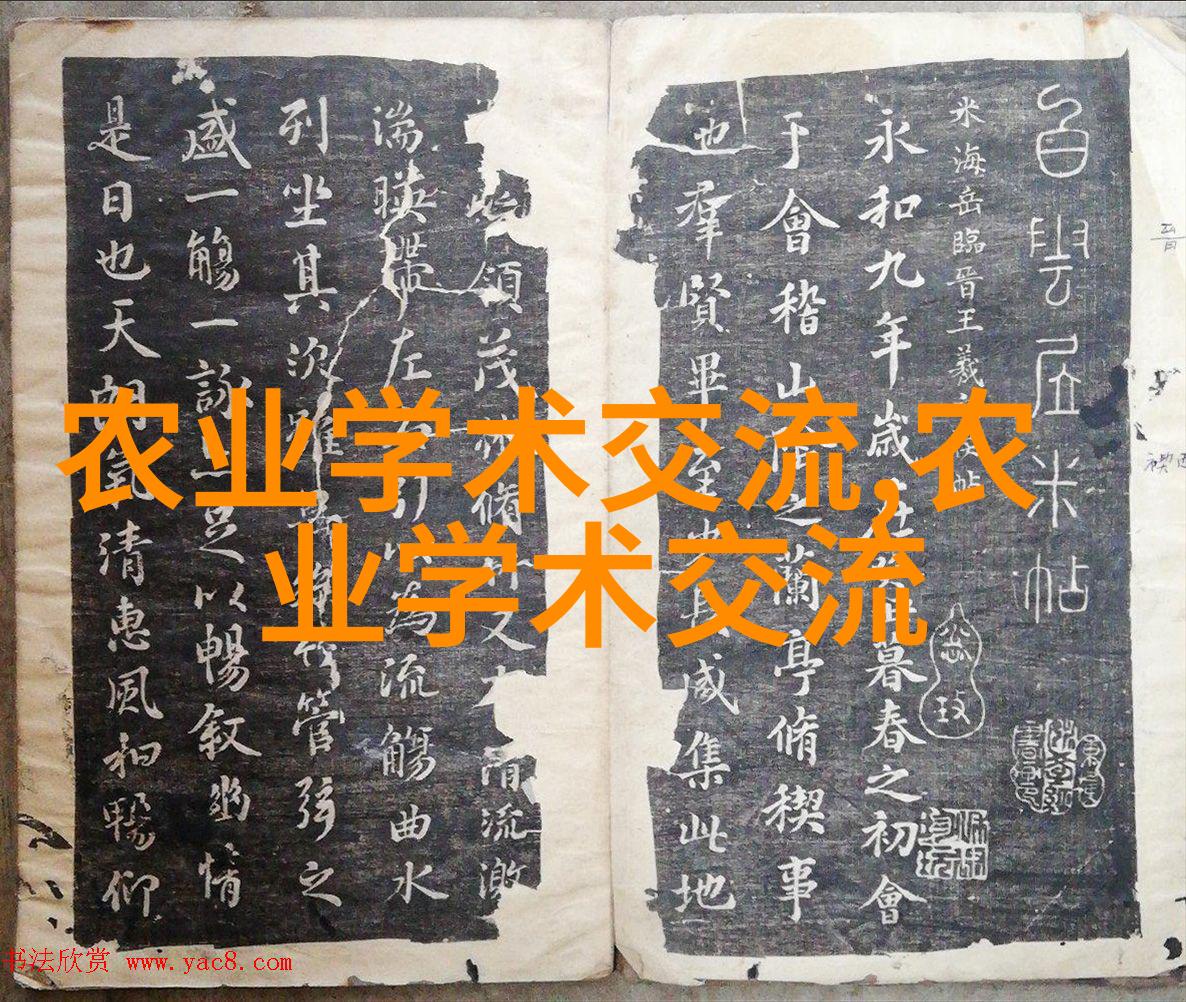 农业学术交流,农
业学术交流
白雲居米帖
米海岳臨晉王羲帖
永和九年歲在暮春之初會
于會稽山之蘭亭脩禊事
也羣賢畢至咸集此地
領茂林脩竹又有清流激
湍暎帶左引以為流觴曲水
列坐其次雖管弦之
盛一觴一詠足以暢敘幽情
是日也天朗氣清惠風和暢仰
书法欣赏 www.yac8.com